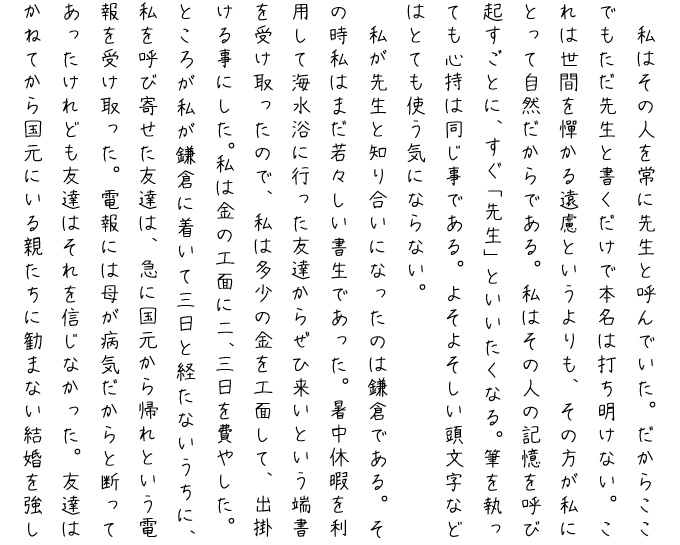 私はその人を常に先生と呼んでいた。だからここ
でもただ先生と書くだけで本名は打ち明けない。こ
れは世間を憚かる遠慮というよりも、その方が私に
とって自然だからである。私はその人の記憶を呼び
起すごとに、すぐ「先生」といいたくなる。筆を執っ
ても心持は同じ事である。よそよそしい頭文字など
はとても使う気にならない。
私が先生と知り合いになったのは鎌倉である。そ
の時私はまだ若々しい書生であった。暑中休暇を利
用して海水浴に行った友達からぜひ来いという端書
を受け取ったので、私は多少の金を工面して、出掛
ける事にした。私は金の工面に二、三日を費やした。
ところが私が鎌倉に着いて三日と経たないうちに、
私を呼び寄せた友達は、急に国元から帰れという電
報を受け取った。電報には母が病気だからと断って
あったけれども友達はそれを信じなかった。友達は
かねてから国元にいる親たちに勧まない結婚を強し